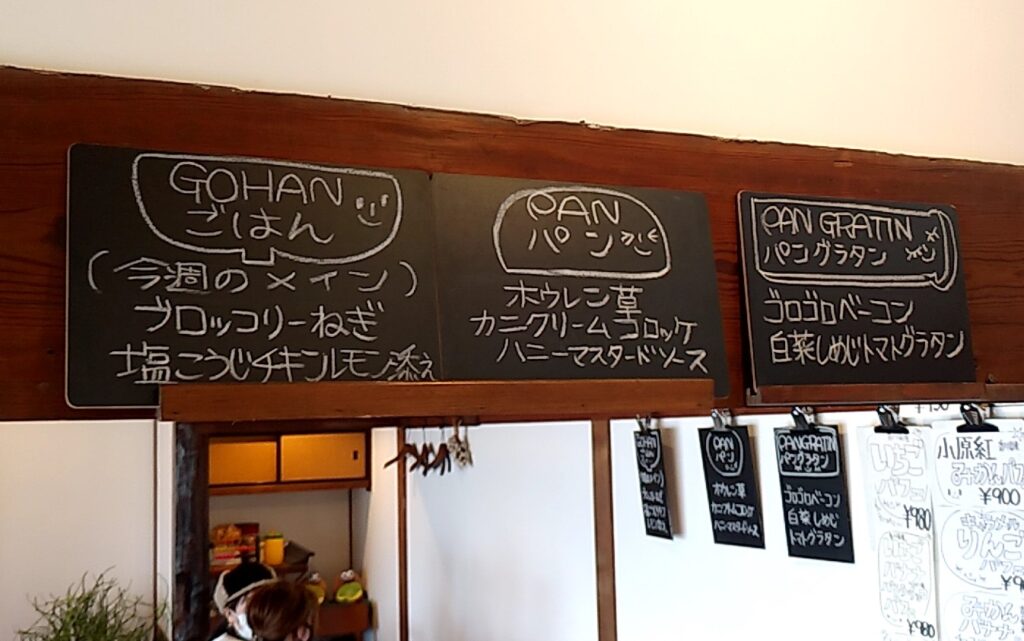 GOHAN
ごはん
(今週のメイン)
ブロッコリーねぎ
塩こうじチキンレモン添え
PAN
パン
ホウレン草
カニクリームコロッケ
ハニーマスタードソース
PAN GRATIN
パングラタン
ゴロゴロベーコン
白菜しめじトマトグラタン
GOHAN
ごはん
PAN
パン
ホウレン草
カニクリームコロッケ
ハニーマスタードソース
PANGRATIN
パングラタン
ゴロゴロベーコン
白菜しめじ
トマトグラタン
いちご
パフェ
¥980
¥980
小原紅
みかんパフェ
¥900
キャラメル
りんご
パフェ
みかん
バナナ